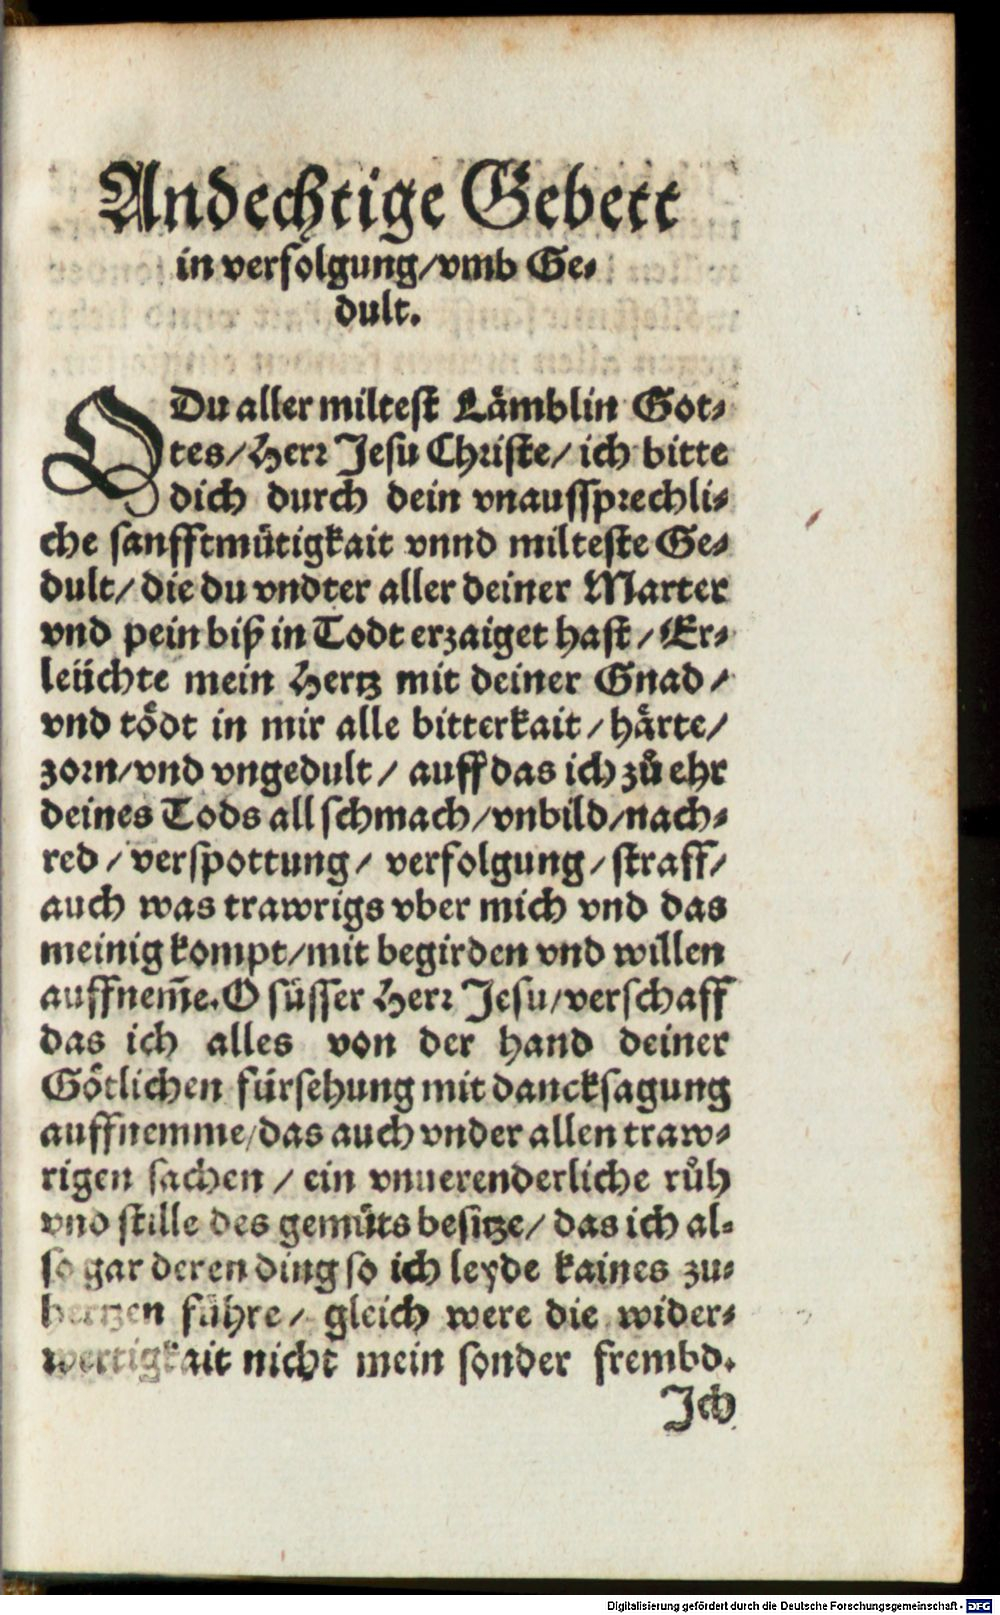 Andechtige Gebett
in verfolgung/vmb Ge⸗
dult.
O Du aller miltest Lämblin Got⸗
tes/Herr Jesu Christe/ ich bitte
dich durch dein vnaussprechli⸗
che sanfftmütigkait vnnd milteste Ge⸗
dult/ die du vndter aller deiner Marter
vnd pein biß in Todt erzaiget hast / Er⸗
leüchte mein Hertz mit deiner Gnad /
vnd tödt in mir alle bitterkait / härte/
zorn/vnd vngedult / auff das ich zů ehr
deines Tods all schmach/vnbild/nach⸗
red / verspottung/ verfolgung/ straff/
auch was trawrigs vber mich vnd das
meinig kompt/mit begirden vnd willen
auffnem̃e. O süsser Herr Jesu/verschaff
das ich alles von der hand deiner
Götlichen fürsehung mit dancksagung
auffnemme/das auch vnder allen traw⸗
rigen sachen / ein vnuerenderliche růh
vnd stille des gemüts besitze/ das ich al⸗
so gar deren ding so ich leyde kaines zu⸗
hertzen führe / gleich were die wider⸗
wertigkait nicht mein sonder frembd.
Ich
Digitalisierung gefördert durch die Deutsche Forschungsgemeinschaft - DFG